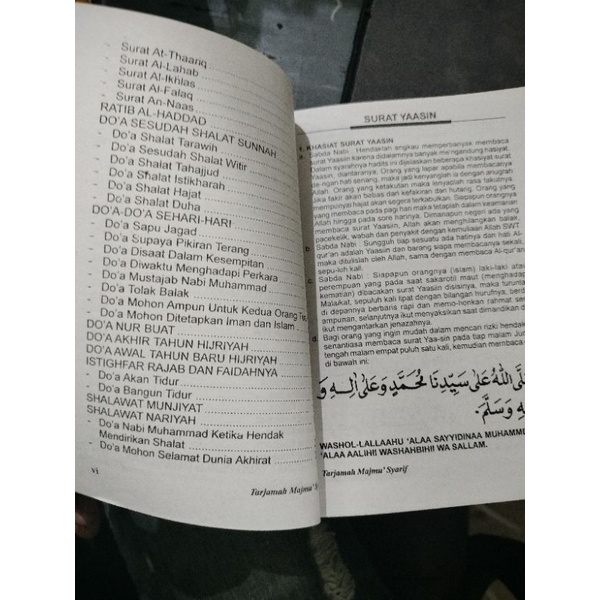 - Surat At-Thaariq
- Surat Al-Lahab
- Surat Al-Ikhlas
- Surat Al-Falaq
- Surat An-Naas
RATIB AL-HADDAD
DO'A SESUDAH SHALAT SUNNAH
- Do'a Shalat Tarawih
- Do'a Sesudah Shalat Witir
- Do'a Shalat Tahajjud
- Do'a Shalat Istikharah
- Do'a Shalat Hajat
- Do'a Shalat Duha
DO'A-DO'A SEHARI-HARI
- Do'a Sapu Jagad
- Do'a Supaya Pikiran Terang
- Do'a Disaat Dalam Kesempitan
- Do'a Diwaktu Menghadapi Perkara
- Do'a Mustajab Nabi Muhammad
- Do'a Tolak Balak
- Do'a Mohon Ampun Untuk Kedua Orang
- Do'a Mohon Ditetapkan Iman dan Islam
DO'A NUR BUAT
DO'A AKHIR TAHUN HIJRIYAH
DO'A AWAL TAHUN BARU HIJRIYAH
ISTIGHFAR RAJAB DAN FAIDAHNYA
- Do'a Akan Tidur
- Do'a Bangun Tidur
SHALAWAT MUNJIYAT
SHALAWAT NARIYAH
- Do'a Nabi Muhammad Ketika Hendak
Mendirikan Shalat
- Do'a Mohon Selamat Dunia Akhirat
vi
Tarjamah Majmu' S
SURAT YAASIN
1. KHASIAT SURAT YAASIN
a. Sabda Nabi : Hendaklah engkau memperbanyak membaca
surat Yaasiin karena didalamnya banyak mengandung hasiyat.
Dalam syarahna hadits ini dijelaskan beberapa khasiyat surat
Yaasiin, diantaranya. Orang yang lapar apabila membaca
de-ngan hati senang, maka jadi kenyanglah dengan anugrah
Allah. Orang yang ketakutan maka lenyaplah rasa takutnya.
jika fakir akan terbuas dari kefakiran dan hutang. Orang yang
mempunyai hajat akan segera terkabulkan. Siapapun orangnya
yang membaca pada pagi hari maka tetaplah dalam keamanan
Allah hingga pada sore harinya. Dimanapun negeri ada yang
membaca surat Yaasiin, Allah akan menghilangkan balak,
paceklik, wabah dan penyakit dengan kemuliaan Allah SWT
b. Sabda Nabi : Sungguh tiap sesuatu ada hatinya dan hati Al-
qur'an adalah Yaasiin dan barang siapa membacanya sekali,
maka ditulislah oleh Allah, sama dengan membaca Al-qur'an
sepu-luh kali.
c. Sabda Nabi : Siapapun orangnya (islam) laki-laki atau
perempuan yang pada saat sakarotil maut (menghadap
kematian) dibacakan surat Yaasiin disisinya, maka turunlah
Malaikat, sepuluh kali lipat dengan bilangan hurufnya, berdi
di depannya berbaris rapi dan memo-honkan rahmat ser
ampunan, selanjutnya ikut menyaksikan saat dimandikan d
ikut mengantarkan jenazahnya.
d. Bagi orang yang ingin mudah dalam mencari rizki hendak
senantiasa membaca surat Yaa-sin pada tiap malam Jum
tengah malam empat puluh satu kali, kemudian membaca
di bawah ini.
صَلَّى اللهُ عَلَى سَيِّدِنَا مُحَمَّدٍ وَعَلَى اٰلِهِ وَ
بِهِ وَسَلَّمَ.
WASHOL-LALLAAHU 'ALAA SAYYIDINAA MUHAMM
'ALAA AALIHII WASHAHBIHII WA SALLAM.
Tarjamah Majmu' Syarif